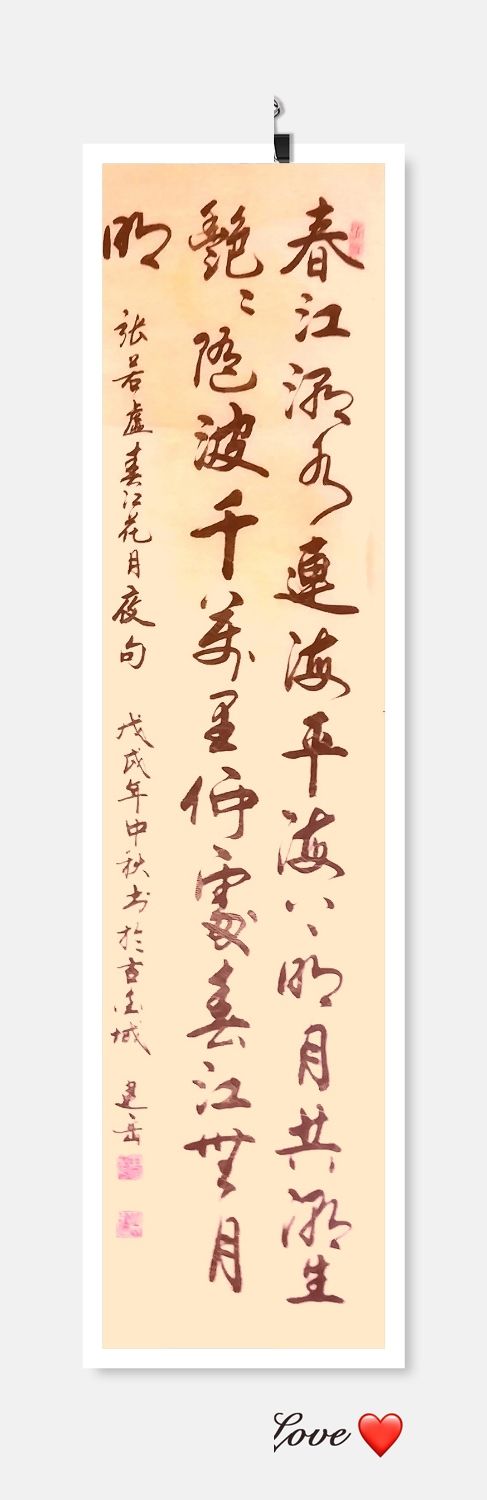 春江潮水連海平海上明月共潮生
艷〻隨波千萬里何處春江無月
明
張若虛春江花月夜句 戊戌年中秋书於古金城 建岳
Love ❤️